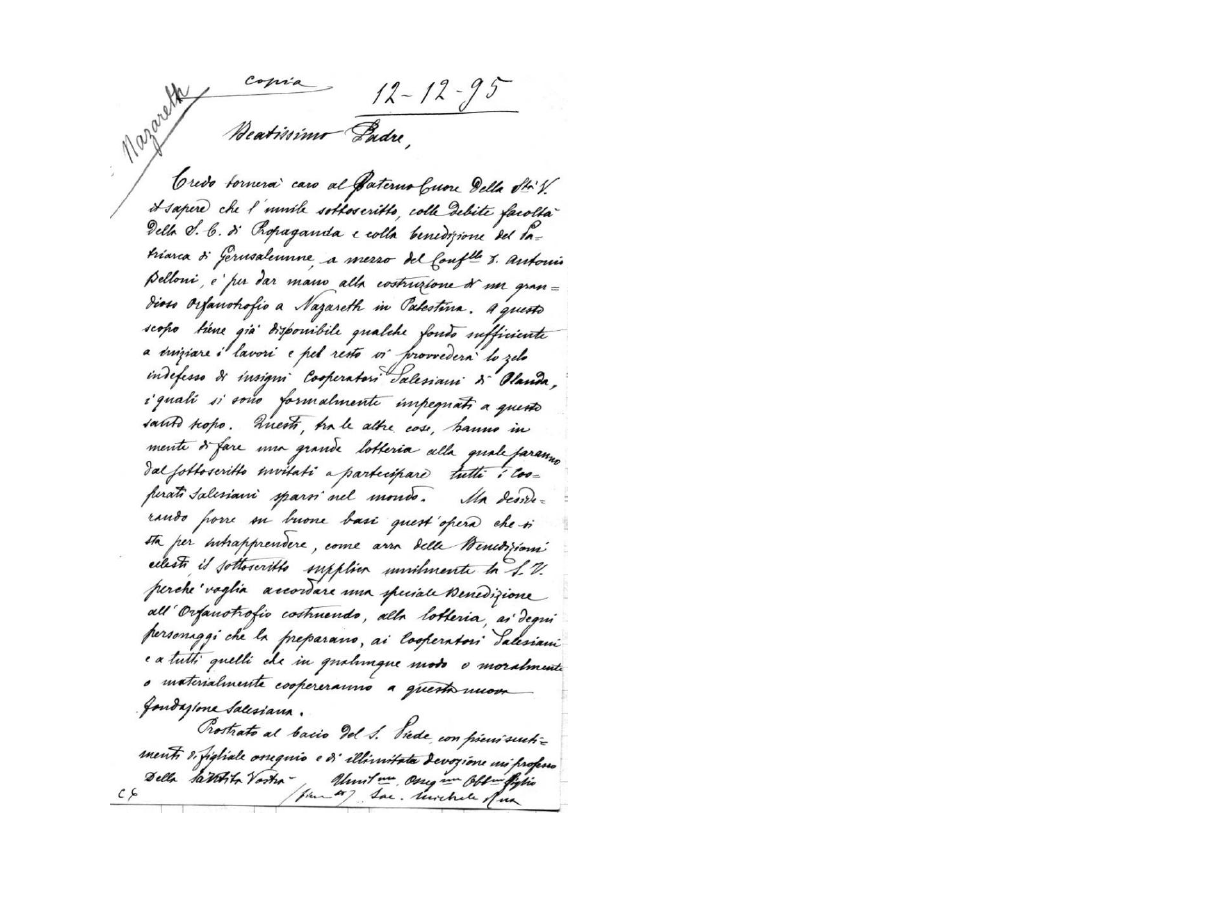 copia
12-12-95
Nazareth
Beatissimo Padre,
Credo tornerà caro al Paterno Cuore Della Stà V.
il sapere che l'umile sottoscritto, colle debite facoltà
Della S. C. di Propaganda e colla benedizione del Pa=
triarca di Gerusalemme, a mezzo del Conf.llo D. Antonio
Belloni, è per dar mano alla costruzione di un gran=
dioso Orfanotrofio a Nazareth in Palestina. A questo
scopo tiene già disponibile qualche fondo sufficiente
a iniziare i lavori e pel resto vi provvederà lo zelo
indefesso di insigni Cooperatori Salesiani di Olanda,
i quali si sono formalmente impegnati a questo
santo scopo. Questi, tra le altre cose, hanno in
mente di fare una grande lotteria alla quale saranno
dal sottoscritto invitati a partecipare tutti i Coo=
perati Salesiani sparsi nel mondo. Ma deside=
rando porre su buone basi quest'opera che si
sta per intrapprendere, come arra delle Benedizioni
celesti il sottoscritto supplica umilmente la S. V.
perchè voglia accordare una speciale Benedizione
all'Orfanotrofio costruendo, alla lotteria, ai degni
personaggi che la preparano, ai Cooperatori Salesiani
e a tutti quelli che in qualunque modo o moralmente
o materialmente coopereranno a questa nuova
fondazione Salesiana.
Prostrato al bacio del S. Piede con pieni senti=
menti di figliale ossequio e di illimitata devozione mi professo
Della Santità Vostra Umil.mo Osseq.mo Obb.mo figlio
Sac. Michele Rua